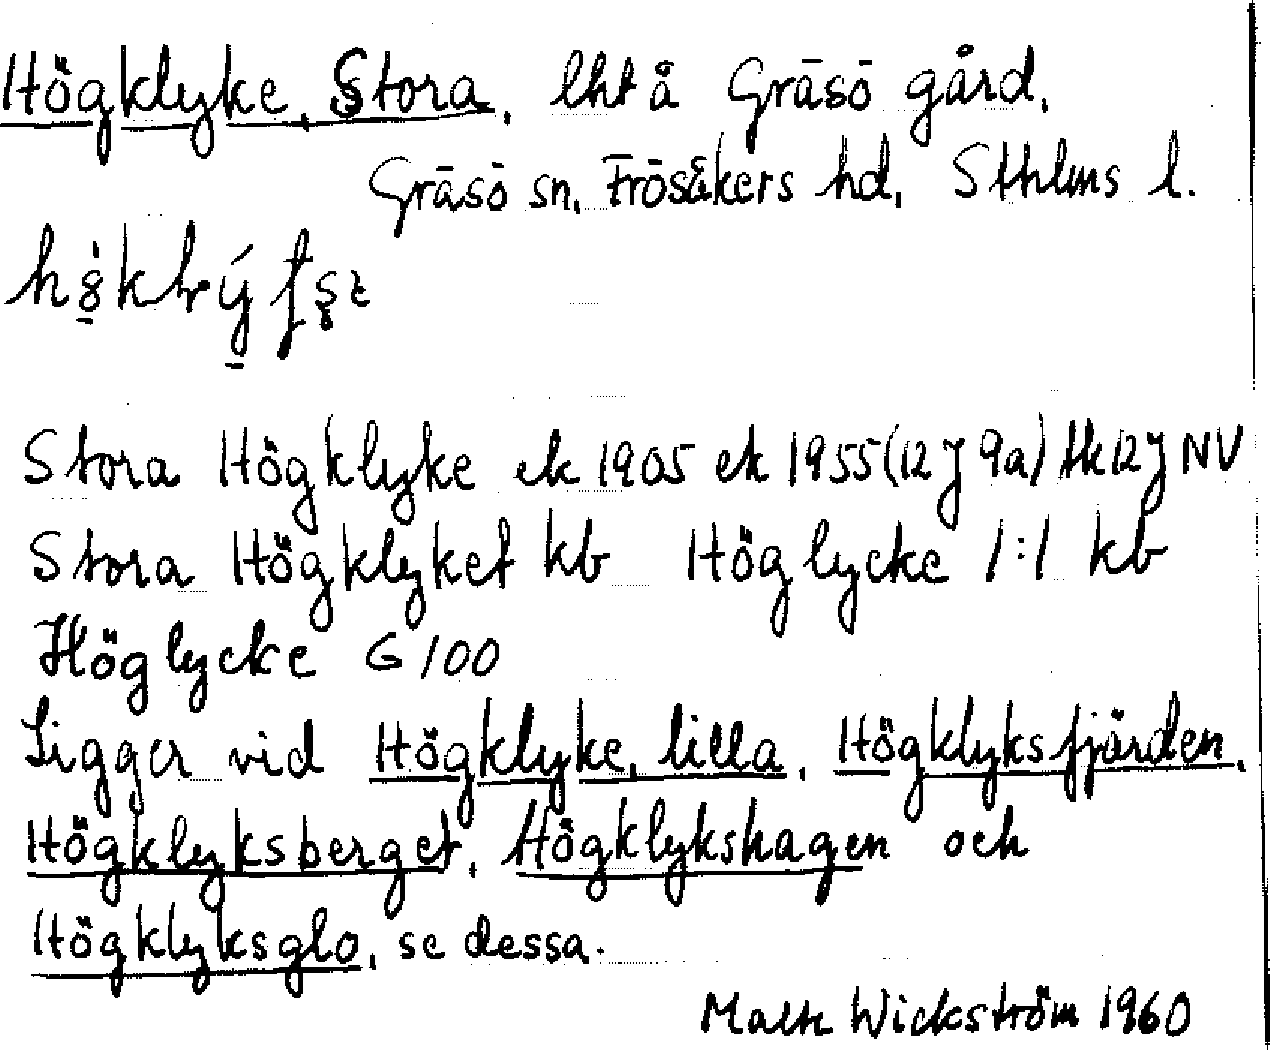 Högklyke, Stora, lht å Gräsö gård,
Gräsö sn, Frösåkers hd, Sthlms l.
Stora Högklyke ek 1905 ek 1955 (12 J 9a) tk 12 J NV
Stora Högklyket kb Höglycke 1:1 kb
Höglycke G 100
Ligger vid Högklyke, lilla, Högklyksfjärden,
Högklyksberget, Högklykshagen och
Högklyksglo, se dessa.
Malte Wickström 1960